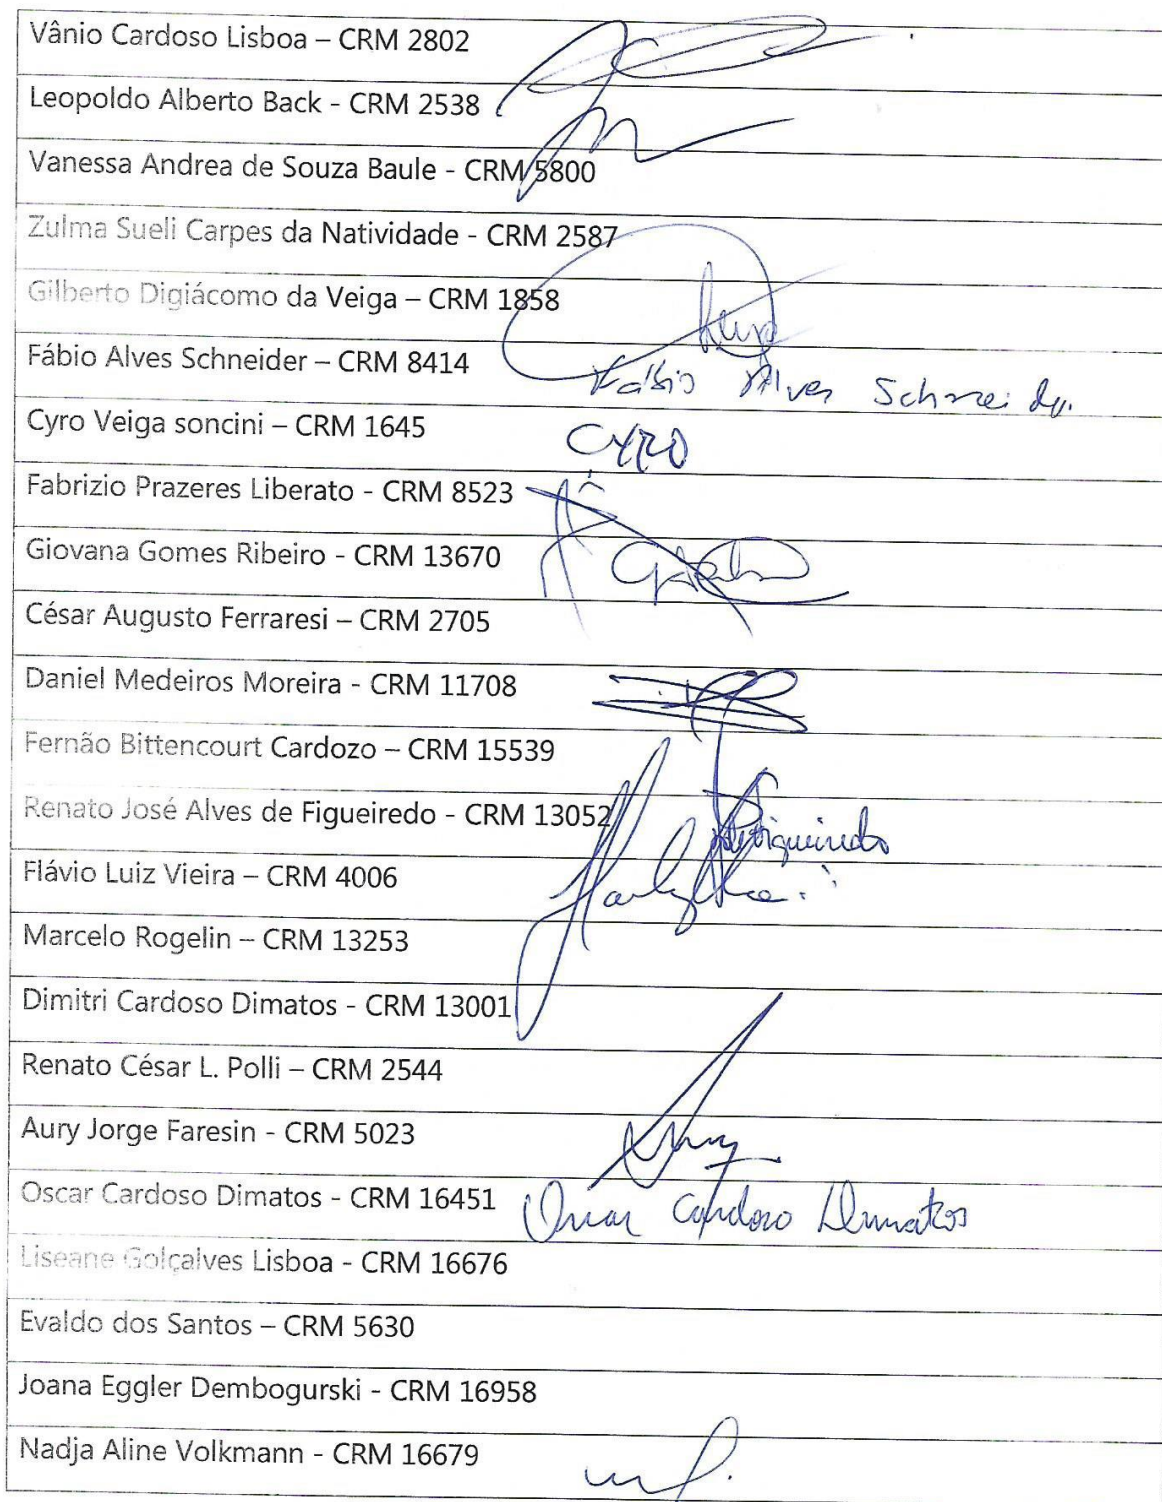 Vânio Cardoso Lisboa – CRM 2802
Leopoldo Alberto Back - CRM 2538
Vanessa Andrea de Souza Baule - CRM 5800
Zulma Sueli Carpes da Natividade - CRM 2587
Gilberto Digiácomo da Veiga – CRM 1858
Fábio Alves Schneider – CRM 8414 Fábio Alves Schneider
Cyro Veiga soncini – CRM 1645 CYRO
Fabrizio Prazeres Liberato - CRM 8523
Giovana Gomes Ribeiro - CRM 13670
César Augusto Ferraresi – CRM 2705
Daniel Medeiros Moreira - CRM 11708
Fernão Bittencourt Cardozo – CRM 15539
Renato José Alves de Figueiredo - CRM 13052
Flávio Luiz Vieira – CRM 4006
Marcelo Rogelin – CRM 13253
Dimitri Cardoso Dimatos - CRM 13001
Renato César L. Polli – CRM 2544
Aury Jorge Faresin - CRM 5023
Oscar Cardoso Dimatos - CRM 16451 Oscar Cardoso Dimatos
Liseane Golçalves Lisboa - CRM 16676
Evaldo dos Santos – CRM 5630
Joana Eggler Dembogurski - CRM 16958
Nadja Aline Volkmann - CRM 16679